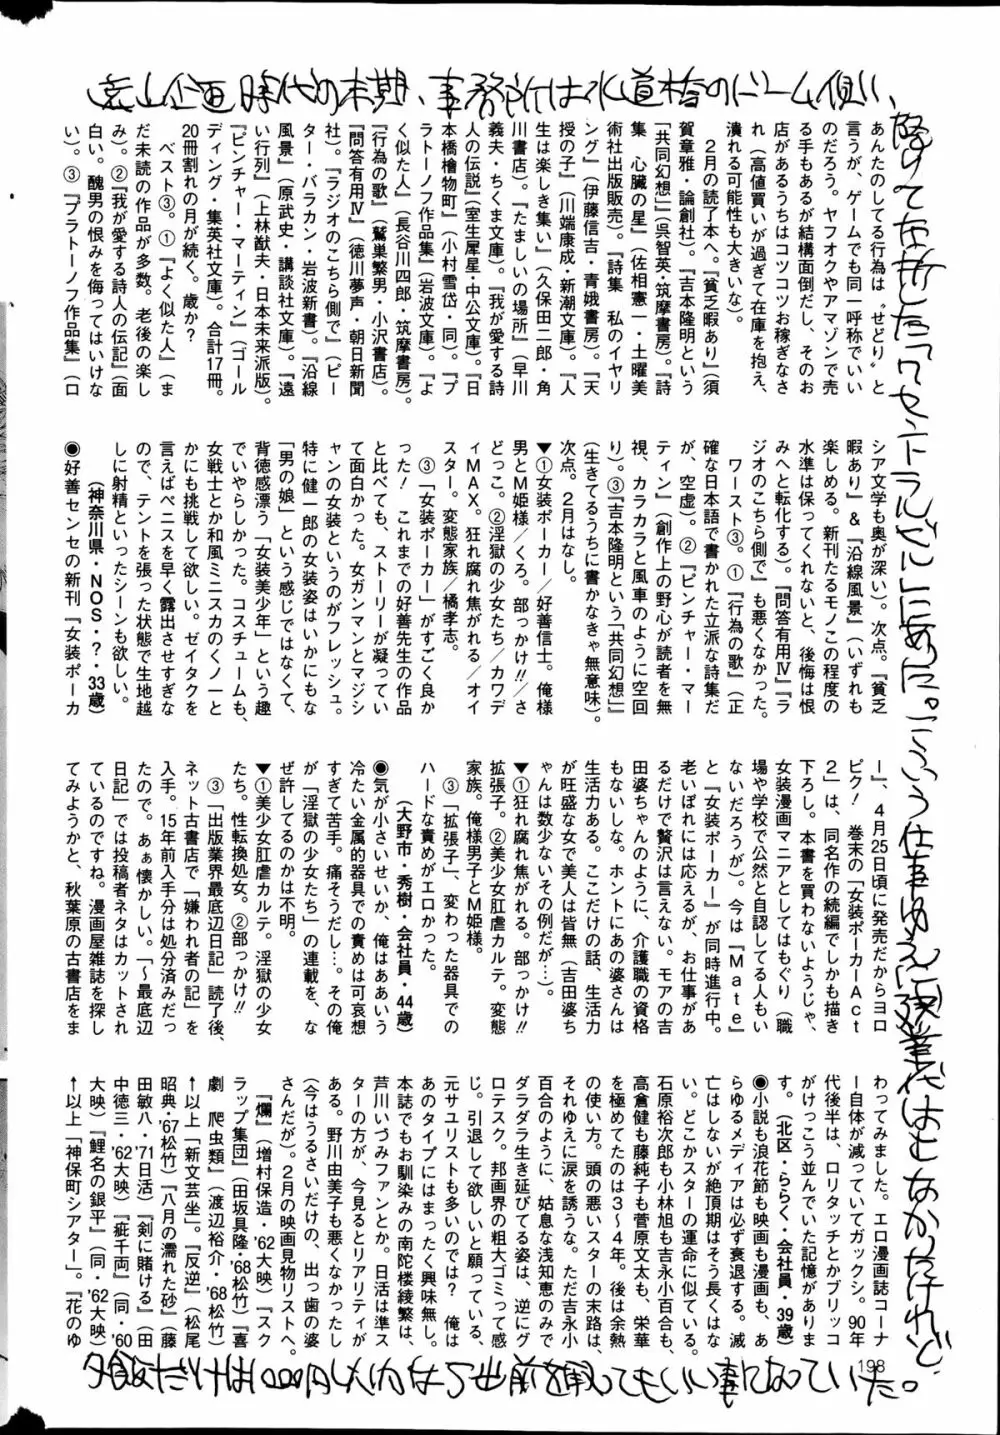 遠山企画時代の末期、事務所は水道橋のドーム側、
降りて右折したワセントラルビルにあった。こういう仕事ゆえ残業代はもちろんなかったけれど、
夕飯だけは1000円以内なら出前を取ってもいい事になっていた。
あんたのしてる行為は〝せどり〟と
言うが、ゲームでも同一呼称でいい
のだろう。ヤフオクやアマゾンで売
る手もあるが結構面倒だし、そのお
店があるうちはコツコツお稼ぎなさ
れ(高値買いが過ぎて在庫を抱え、
潰れる可能性も大きいな)。
2月の読了本へ。『貧乏暇あり』(須
賀章雅・論創社)。『吉本隆明という
「共同幻想」』(呉智英・筑摩書房)。『詩
集 心臓の星』(佐相憲一・土曜美
術社出版販売)。『詩集 私のイヤリ
ング』(伊藤信吉・青娥書房)。『天
授の子』(川端康成・新潮文庫)。『人
生は楽しき集い』(久保田二郎・角
川書店)。『たましいの場所』(早川
義夫・ちくま文庫)。『我が愛する詩
人の伝説』(室生犀星・中公文庫)。『日
本橋檜物町』(小村雪岱・同)。『プ
ラトーノフ作品集』(岩波文庫)。『よ
く似た人』(長谷川四郎・筑摩書房)。
『行為の歌』(鷲巣繁男・小沢書店)。
『問答有用Ⅳ』(徳川夢声・朝日新聞
社)。『ラジオのこちら側で』(ピー
ター・バラカン・岩波新書)。『沿線
風景』(原武史・講談社文庫)。『遠
い行列』(上林猷夫・日本未来派版)。
『ピンチャー・マーティン』(ゴール
ディング・集英社文庫)。合計17冊。
20冊割れの月が続く。歳か?
ベスト③。①『よく似た人』(ま
だ未読の作品が多数。老後の楽し
み)。②『我が愛する詩人の伝記』(面
白い。醜男の恨みを侮ってはいけな
い)。③『プラトーノフ作品集』(ロ
シア文学も奥が深い)。次点。『貧乏
暇あり』&『沿線風景』(いずれも
楽しめる。新刊たるモノこの程度の
水準は保ってくれないと、後悔は恨
みへと転化する)。『問答有用Ⅳ』『ラ
ジオのこちら側で』も悪くなかった。
ワースト③。①『行為の歌』(正
確な日本語で書かれた立派な詩集だ
が、空虚)。②『ピンチャー・マー
ティン』(創作上の野心が読者を無
視、カラカラと風車のように空回
り)。③『吉本隆明という「共同幻想」』
(生きてるうちに書かなきゃ無意味)。
次点。2月はなし。
▼①女装ポーカー/好善信士。俺様
男とM姫様/くろ。部っかけ!!/さ
どっこ。②淫獄の少女たち/カワデ
ィMAX。狂れ腐れ焦がれる/オイ
スター。変態家族/橘孝志。
③「女装ポーカー」がすごく良か
った! これまでの好善先生の作品
と比べても、ストーリーが凝ってい
て面白かった。女ガンマンとマジシ
ャンの女装というのがフレッシュ。
(神奈川県・NOS・?・33歳)
●好善センセの新刊『女装ポーカ
ー』、4月25日頃に発売だからヨロ
ピク! 巻末の「女装ポーカーAct
2」は、同名作の続編でしかも描き
下ろし。本書を買わないようじゃ、
女装漫画マニアとしてはもぐり(職
場や学校で公然と自認してる人もい
ないだろうが)。今は『Mate』
と『女装ポーカー』が同時進行中。
老いぼれには応えるが、お仕事があ
るだけで贅沢は言えない。モアの吉
田婆ちゃんのように、介護職の資格
もないしな。ホントにあの婆さんは
生活力ある。ここだけの話、生活力
が旺盛な女で美人は皆無(吉田婆ち
ゃんは数少ないその例だが…)。
▼①狂れ腐れ焦がれる。部っかけ!!
拡張子。②美少女肛虐カルテ。変態
家族。俺様男子とM姫様。
③「拡張子」、変わった器具での
ハードな責めがエロかった。
(大野市・秀樹・会社員・44歳)
●気が小さいせいか、俺はああいう
冷たい金属的器具での責めは可哀想
すぎて苦手。痛そうだし…。その俺
が「淫獄の少女たち」の連載を、な
ぜ許してるのかは不明。
▼①美少女肛虐カルテ。淫獄の少女
たち。性転換処女。②部っかけ!!
③「出版業界最底辺日記」読了後、
ネット古書店で「嫌われ者の記」を
入手。15年前入手分は処分済みだっ
たので。あぁ懐かしい。「〜最底辺
日記」では投稿者ネタはカットされ
ているのですね。漫画屋雑誌を探し
てみようかと、秋葉原の古書店をま
わってみました。エロ漫画誌コーナ
ー自体が減っていてガックシ。90年
代後半は、ロリタッチとかブリッコ
がけっこう並んでいた記憶がありま
す。(北区・ららく・会社員・39歳)
●小説も浪花節も映画も漫画も、あ
らゆるメディアは必ず衰退する。滅
亡はしないが絶頂期はそう長くはな
い。どこかスターの運命に似ている。
石原裕次郎も小林旭も吉永小百合も
高倉健も藤純子も菅原文太も、栄華
を極めてたのは3〜4年。後は余熱
の使い方。頭の悪いスターの末路は、
それゆえに涙を誘うな。ただ吉永小
百合のように、姑息な浅知恵のみで
ダラダラ生き延びてる姿は、逆にグ
ロテスク。邦画界の粗大ゴミって感
じ。引退して欲しいと願っている、
元サユリストも多いのでは? 俺は
あのタイプにはまったく興味無し。
本誌でもお馴染みの南陀楼綾繁は、
芦川いづみファンとか。日活は準ス
ターの方が、今見るとリアリティが
ある。野川由美子も悪くなかったし
(今はうるさいだけの、出っ歯の婆
さんだが)。2月の映画見物リストへ。
『爛』(増村保造・'62大映)『スク
ラップ集団』(田坂具隆・'68松竹)『喜
劇 爬虫類』(渡辺裕介・'68松竹)
↑以上「新文芸坐」。『反逆』(松尾
昭典・'67松竹)『八月の濡れた砂』(藤
田敏八・'71日活)『剣に賭ける』(田
中徳三・'62大映)『疵千両』(同・'60
大映)『鯉名の銀平』(同・'62大映)
↑以上「神保町シアター」。『花のゆ
198